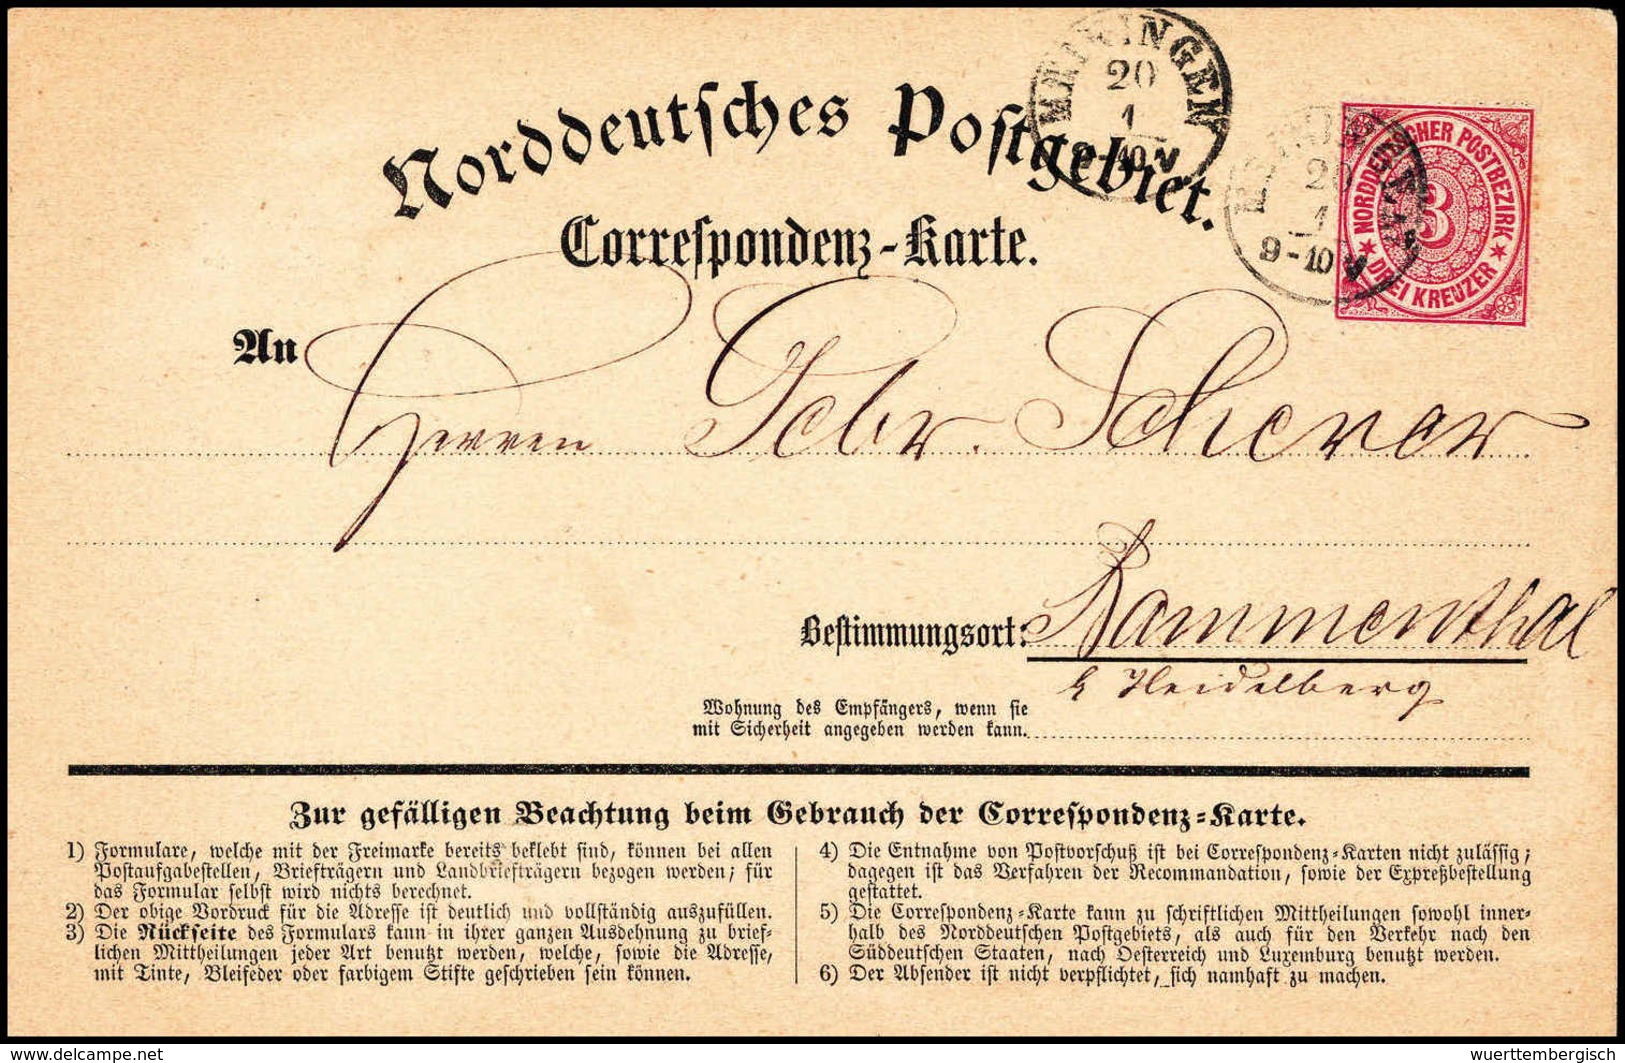 Norddeutsches Postgebiet.
Correspondenz-Karte.
20
1
9-10 V
NORDDEUTSCHER POSTBEZIRK
3
DREI KREUZER
20
1
9-10 V
An Herren Gebr. Scherer
Bestimmungsort: Rammenthal
b Heidelberg
Wohnung des Empfängers, wenn sie
mit Sicherheit angegeben werden kann.
Zur gefälligen Beachtung beim Gebrauch der Correspondenz-Karte.
1) Formulare, welche mit der Freimarke bereits beklebt sind, können bei allen
Postaufgabestellen, Briefträgern und Landbriefträgern bezogen werden; für
das Formular selbst wird nichts berechnet.
2) Der obige Vordruck für die Adresse ist deutlich und vollständig auszufüllen.
3) Die Rückseite des Formulars kann in ihrer ganzen Ausdehnung zu brief-
lichen Mittheilungen jeder Art benutzt werden, welche, sowie die Adresse,
mit Tinte, Bleifeder oder farbigem Stifte geschrieben sein können.
4) Die Entnahme von Postvorschuß ist bei Correspondenz-Karten nicht zulässig;
dagegen ist das Verfahren der Recommandation, sowie der Expreßbestellung
gestattet.
5) Die Correspondenz-Karte kann zu schriftlichen Mittheilungen sowohl inner-
halb des Norddeutschen Postgebiets, als auch für den Verkehr nach den
Süddeutschen Staaten, nach Oesterreich und Luxemburg benutzt werden.
6) Der Absender ist nicht verpflichtet, sich namhaft zu machen.
delcampe.net
wuerttembergisch